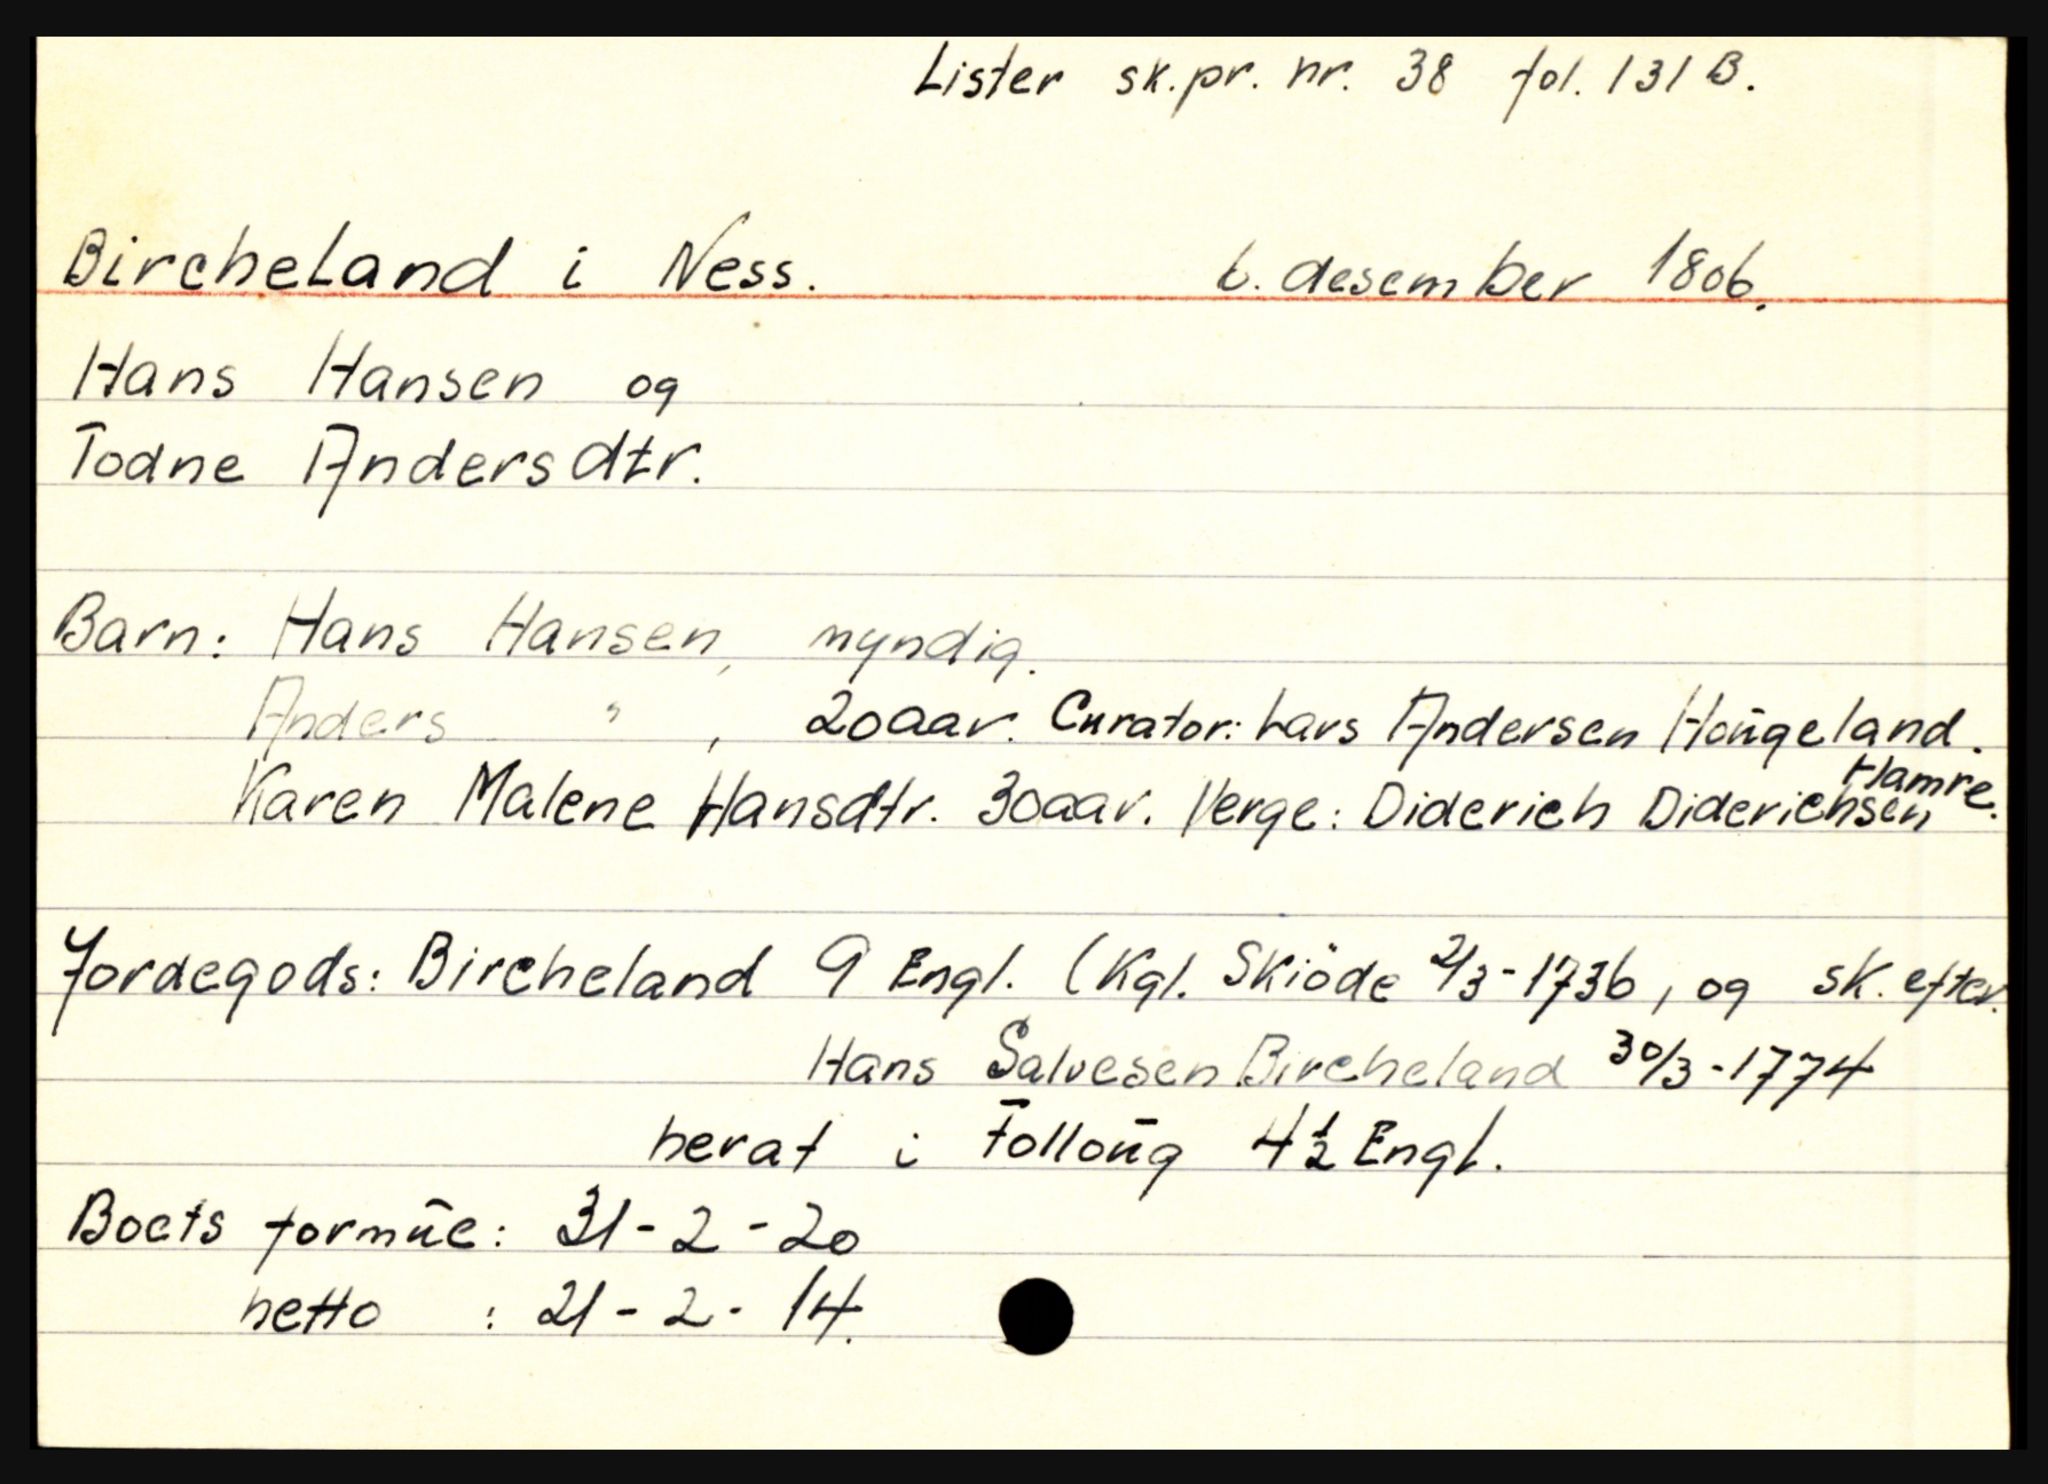 Lister sk.pr. nr. 38 fol. 131 B.
Bircheland i Ness. 6. desember 1806.
Hans Hansen og
Todne Andersdtr.
Barn: Hans Hansen, myndig.
Anders " , 20aar. Curator: Lars Andersen Houngeland.
Karen Malene Hansdtr. 30aar. Verge: Diderich Diderichsen Hamre.
Jordegods: Bircheland 9 Engl. (Kgl. Skiöde 2/3-1736, og sk. efter.
Hans Salvesen Bircheland 30/3-1774
herat i Folloug 4 1/2 Engl.
Boets formūe: 31-2-20
netto : 21-2-14.